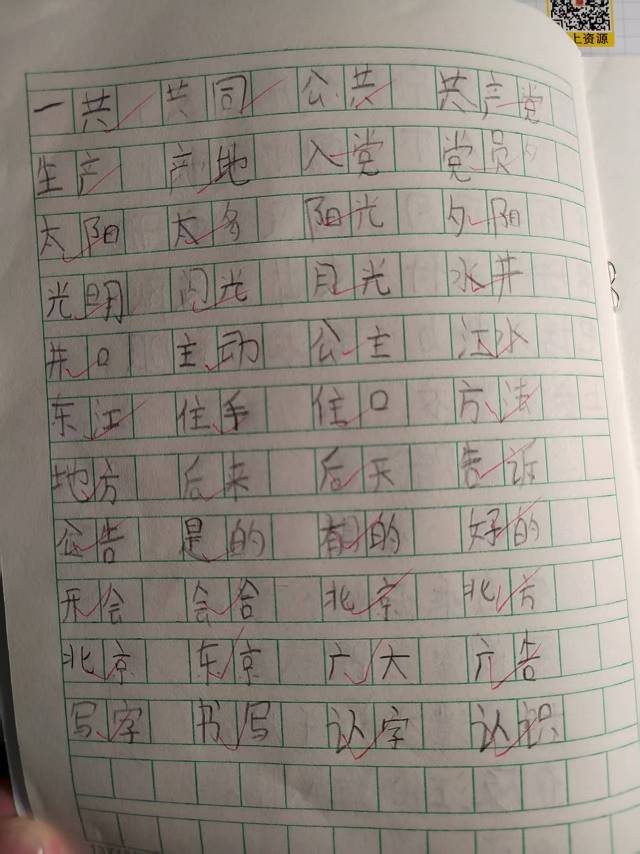 上资源
一共 共同 公共 共产党
生产 产地 入党 党员
太阳 太多 阳光 夕阳
光明 闪光 月光 水井
井口 主动 公主 江水
东江 住手 住口 方法
地方 后来 后天 告诉
公告 是的 有的 好的
开会 会合 北京 北方
北京 东京 广大 广告
写字 书写 认字 认识